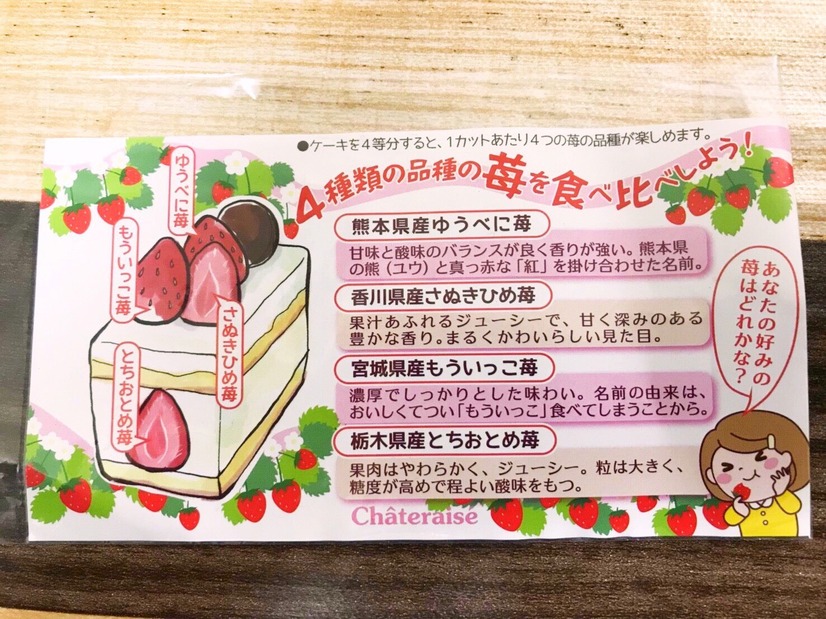 ●ケーキを4等分すると、1カットあたり4つの苺の品種が楽しめます。
4種類の品種の苺を食べ比べしよう!
ゆうべに苺
もういっこ苺
さぬきひめ苺
とちおとめ苺
熊本県産ゆうべに苺
甘味と酸味のバランスが良く香りが強い。熊本県
の熊(ユウ)と真っ赤な「紅」を掛け合わせた名前。
香川県産さぬきひめ苺
果汁あふれるジューシーで、甘く深みのある
豊かな香り。まるくかわいらしい見た目。
宮城県産もういっこ苺
濃厚でしっかりとした味わい。名前の由来は、
おいしくてつい「もういっこ」食べてしまうことから。
栃木県産とちおとめ苺
果肉はやわらかく、ジューシー。粒は大きく、
糖度が高めで程よい酸味をもつ。
あなたの好みの
苺はどれかな?
Châteraisé